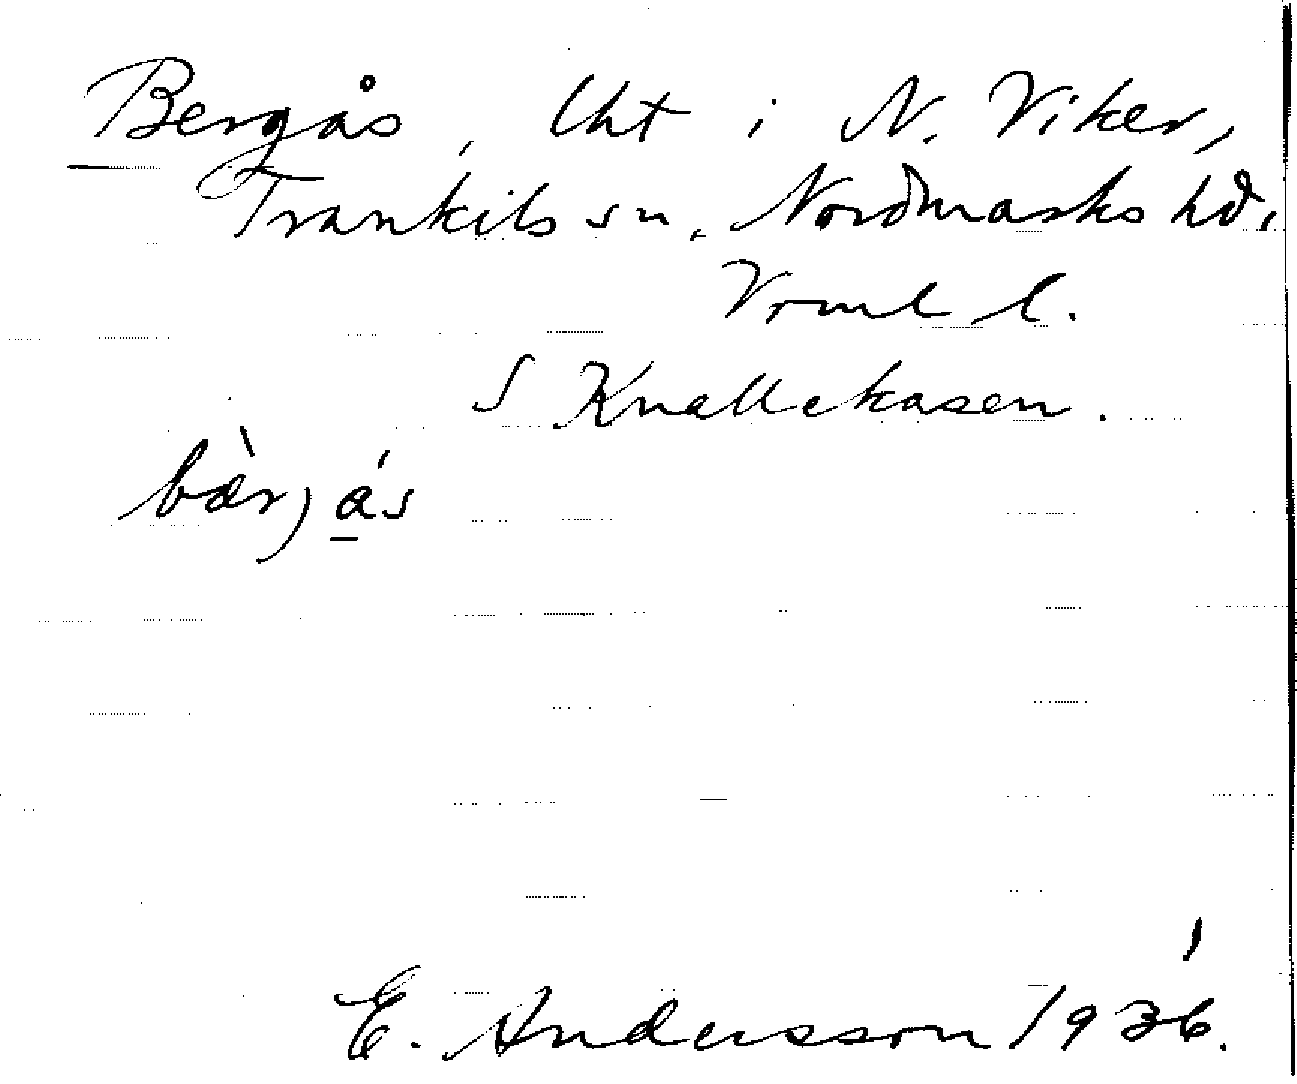 Bergås, lht i N. Viker,
Trankils sn, Nordmarks hd,
Vrml l.
S Knallekasen.
bær) ás
E. Andersson 1936.